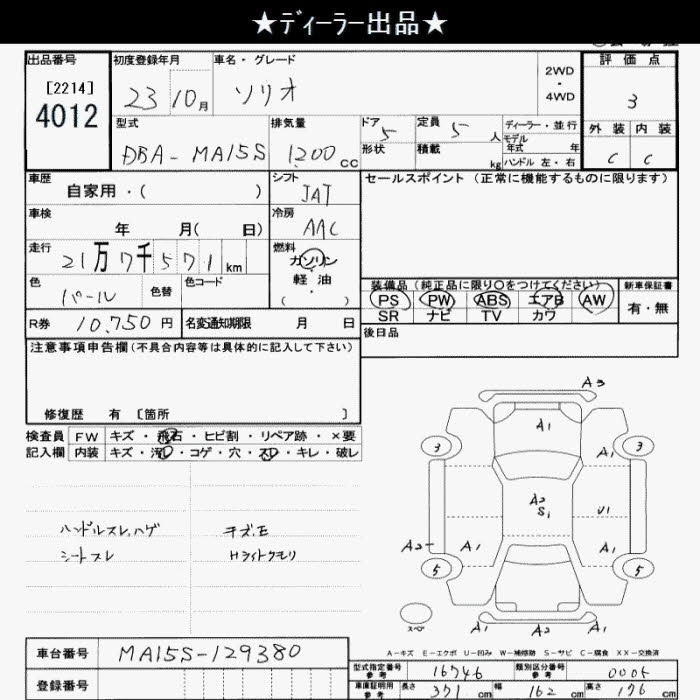 ★ディーラー出品★
出品番号 初度登録年月 車名・グレード 2WD ・ 4WD 評価点
[2214] 4012 23 10月 ソリオ 3
型式 排気量 ドア 5 定員 5 人 ディーラー・並行 外装 内装
DBA-MA15S 1200 cc 形状 積載 kg モデル年式 年 ハンドル 左・右 C C
車歴 シフト セールスポイント (正常に機能するものに限ります)
自家用・( ) IAT
車検 冷房
年 月( 日) AAC
走行 燃料
21万7千571km ガソリン
色 色替 色コード 軽油
パール ・ ( )
装備品 (純正品に限り〇をつけてください) 新車保証書
PS PW ABS エアB AW 有・無
SR ナビ TV カワ
R券 10,750円 名変通知期限 月 日
後日品
注意事項申告欄(不具合内容等は具体的に記入して下さい)
修復歴 有 [箇所 ]
検査員 FW キズ・飛石・ヒビ割・リペア跡・×要
記入欄 内装 キズ・汚レ・コゲ・穴・スレ・キレ・破レ
ハンドルスレ,ハゲ キズ,E
シートスレ Hライトクモリ
A3
A1
3 A1 3
A2 S1 U1
A2 A1 A1
5 5
スペア A1 A2 A1
A-キズ E-エクボ U-凹み W-補修跡 S-サビ C-腐食 XX-交換済
車台番号 MA15S-129380
登録番号
型式指定番号 参考 16746 類別区分番号 参考 0005
車庫証明用 参考 長さ 371 cm 幅 162 cm 高さ 176 cm